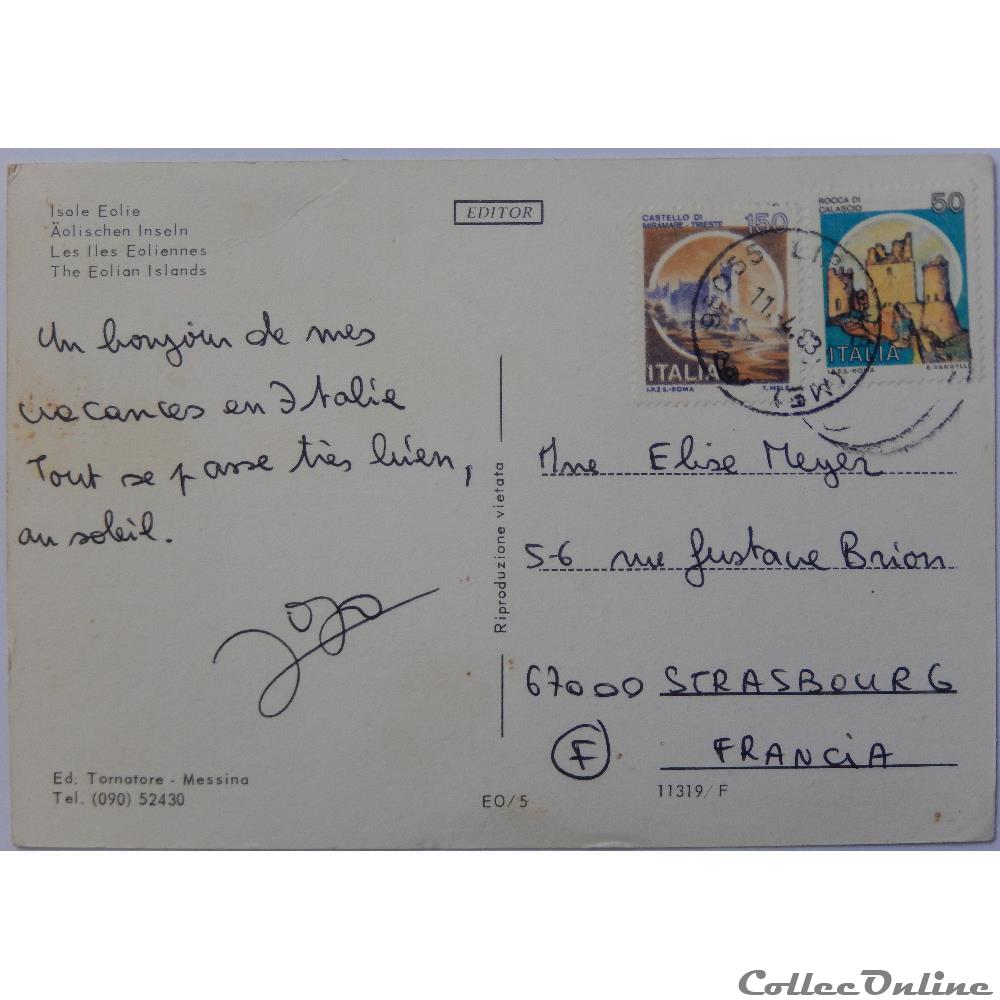 Isole Eolie
Äolischen Inseln
Les Iles Eoliennes
The Eolian Islands
EDITOR
CASTELLO DI
MIRAMARE - TRIESTE
150
ITALIA
I.P.Z.S. - ROMA
ROCCA DI
CALASCIO
50
ITALIA
I.P.Z.S. - ROMA
98055 LIP
11.-4.83
(ME)
Un bonjour de mes
vacances en Italie
Tout se passe très bien,
au soleil.
Riproduzione vietata
Mme Elise Meyer
5-6 rue Gustave Brion
67000 STRASBOURG
F FRANCIA
Ed. Tornatore - Messina
Tel. (090) 52430
EO/5
11319/F
CollecOnline